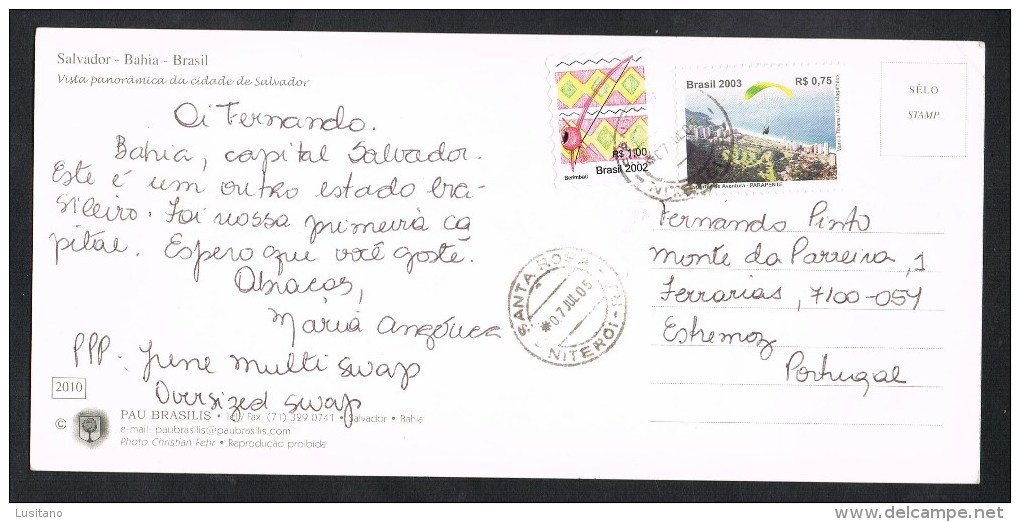 Salvador - Bahia - Brasil
Vista panorâmica da cidade de Salvador
Oi Fernando.
Bahia, capital Salvador.
Este é um outro estado bra-
sileiro. Foi nossa primeira ca
pital. Espero que você goste.
Abraços,
Maria Angélica
PPP. June multi swap
Oversized swap
2010
© PAU BRASILIS • Tel/Fax: (71) 399 0741 • Salvador • Bahia
e-mail: paubrasilis@paubrasilis.com
Photo Christian Fehr • Reprodução proibida
R$ 1,00
Berimbau
Brasil 2002
Brasil 2003 R$ 0,75
de Aventura - PARAPENTE
NITERÓI
07 JUL
SÊLO
STAMP
SANTA ROSA
*07 JUL 05
- NITERÓI - RJ
Fernando Pinto
Monte da Parreira, 1
Ferrarias, 7100-054
Estremoz
Portugal
Lusitano
www.delcampe.net